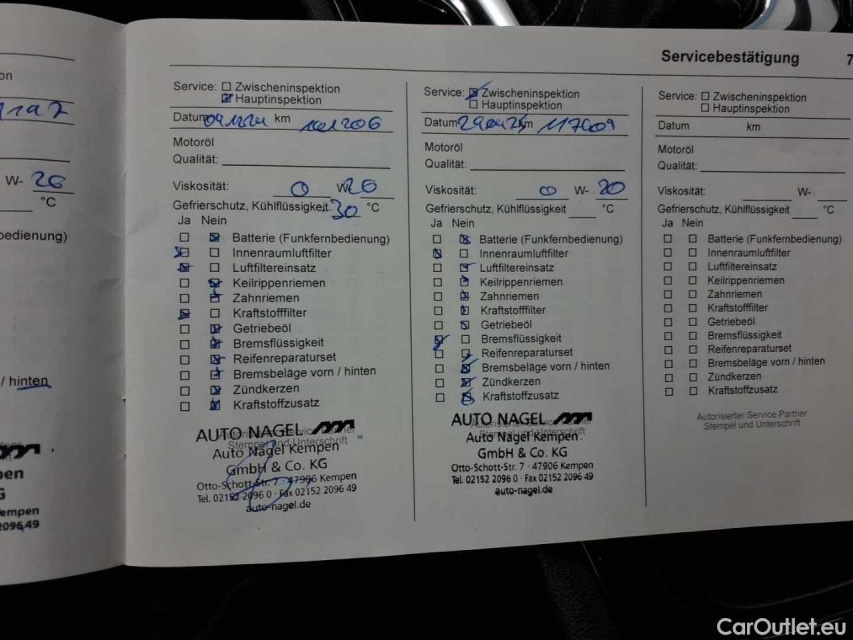 Servicebestätigung 7
on
W- 26
°C
bedienung)
/ hinten
pen
Kempen
2096 49
Service: Zwischeninspektion
Hauptinspektion
Datum km
Motoröl
Qualität:
Viskosität: 0 W- 20
Gefrierschutz, Kühlflüssigkeit 30 °C
Ja Nein
Batterie (Funkfernbedienung)
Innenraumluftfilter
Luftfiltereinsatz
Keilrippenriemen
Zahnriemen
Kraftstofffilter
Getriebeöl
Bremsflüssigkeit
Reifenreparaturset
Bremsbeläge vorn / hinten
Zündkerzen
Kraftstoffzusatz
Autorisierter Service Partner
Stempel und Unterschrift
AUTO NAGEL
Auto Nagel Kempen
GmbH & Co. KG
Otto-Schott-Str. 7 · 47906 Kempen
Tel. 02152 2096 0 · Fax 02152 2096 49
auto-nagel.de
Service: Zwischeninspektion
Hauptinspektion
Datum 29.04.25 km 117609
Motoröl
Qualität:
Viskosität: 0 W- 20
Gefrierschutz, Kühlflüssigkeit °C
Ja Nein
Batterie (Funkfernbedienung)
Innenraumluftfilter
Luftfiltereinsatz
Keilrippenriemen
Zahnriemen
Kraftstofffilter
Getriebeöl
Bremsflüssigkeit
Reifenreparaturset
Bremsbeläge vorn / hinten
Zündkerzen
Kraftstoffzusatz
Autorisierter Service Partner
Stempel und Unterschrift
AUTO NAGEL
Auto Nagel Kempen
GmbH & Co. KG
Otto-Schott-Str. 7 · 47906 Kempen
Tel. 02152 2096 0 · Fax 02152 2096 49
auto-nagel.de
Service: Zwischeninspektion
Hauptinspektion
Datum km
Motoröl
Qualität:
Viskosität: W-
Gefrierschutz, Kühlflüssigkeit °C
Ja Nein
Batterie (Funkfernbedienung)
Innenraumluftfilter
Luftfiltereinsatz
Keilrippenriemen
Zahnriemen
Kraftstofffilter
Getriebeöl
Bremsflüssigkeit
Reifenreparaturset
Bremsbeläge vorn / hinten
Zündkerzen
Kraftstoffzusatz
Autorisierter Service Partner
Stempel und Unterschrift
CarOutlet.eu